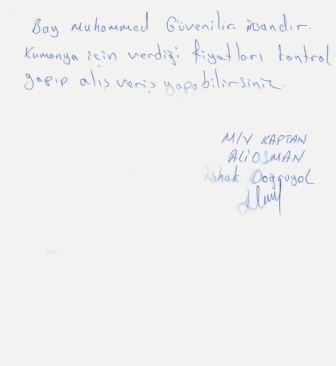 Bay Muhammed Güvenilir insandır.
Kumanya için verdiği fiyatları kontrol
yapıp alış veriş yapabilirsiniz.
M/V KAPTAN
ALİ OSMAN
İshak Doğruyol